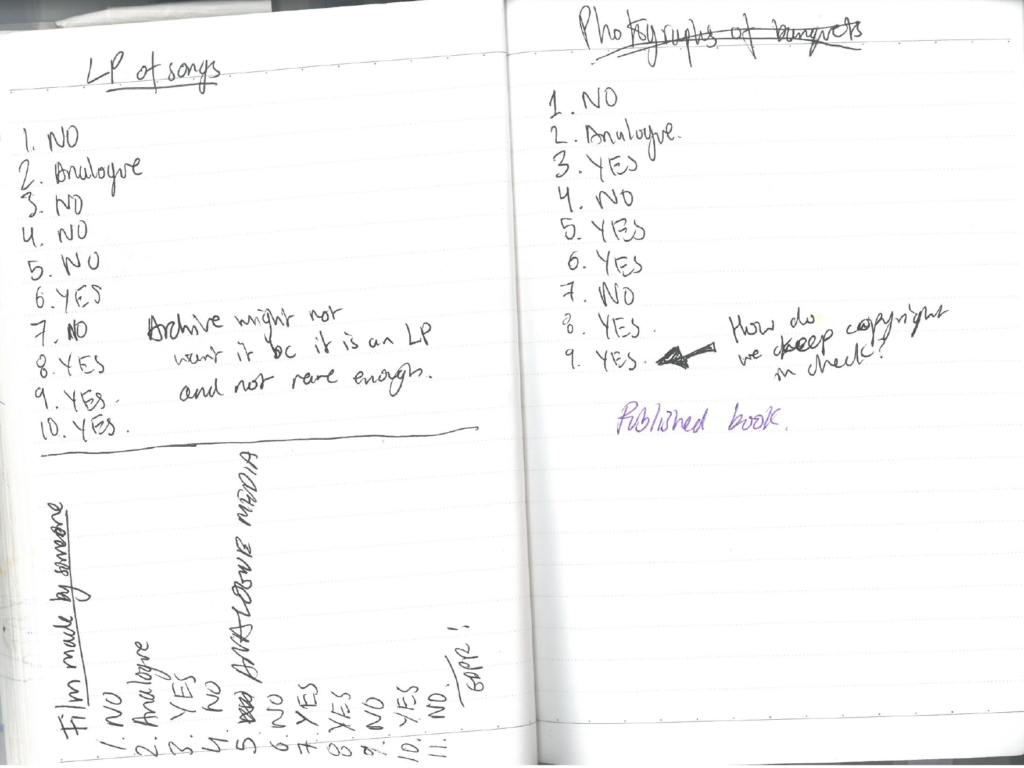 LP of songs
1. NO
2. Analogue
3. NO
4. NO
5. NO
6. YES
7. NO
8. YES
9. YES.
10. YES.
Archive might not
want it bc it is an LP
and not rare enough.
Film made by someone
1. NO
2. Analogue
3. YES
4. NO
5. ANALOGUE MEDIA
6. NO
7. YES
8. YES
9. NO
10. YES
11. NO.
GDPR!
Photographs of banquets
1. NO
2. Analogue.
3. YES
4. NO
5. YES
6. YES
7. NO
8. YES.
9. YES.
How do
we keep copyright
in check?
Published book.